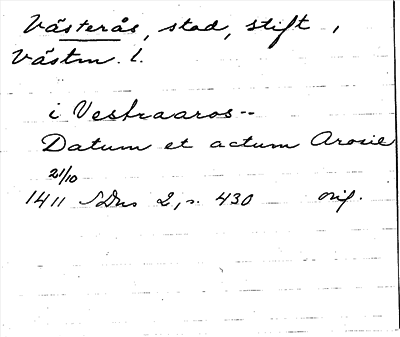 Västerås, stad, stift,
Västm. l.
i Vestraaros--
Datum et actum Arosie
21/10
1411 SDns 2, s. 430 orig.